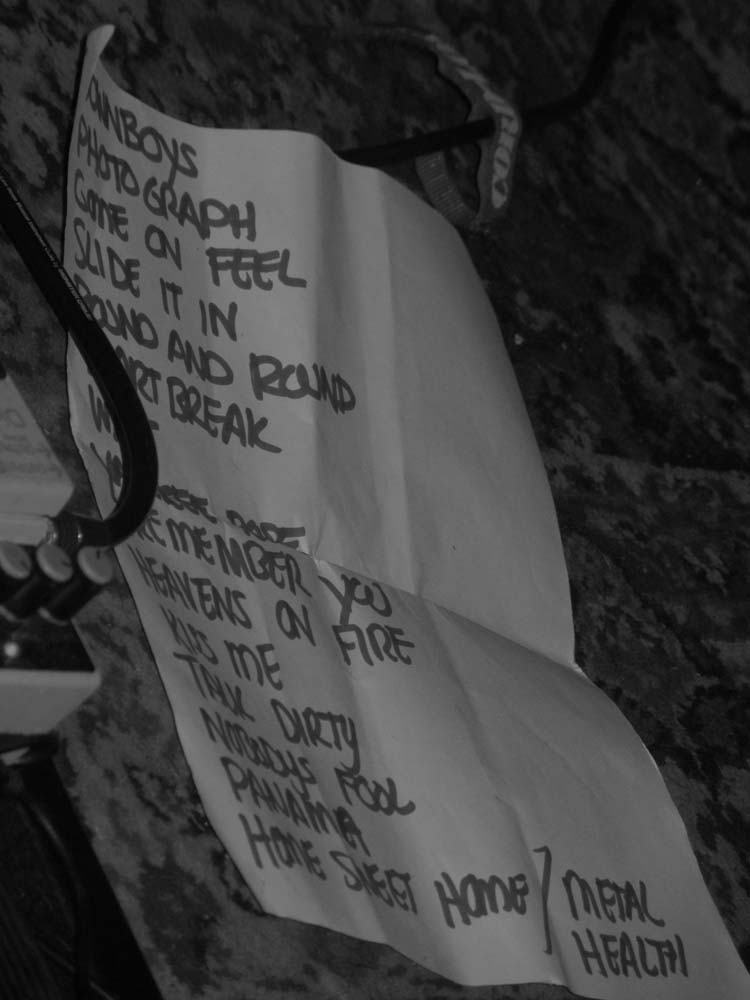 OWNBOYS
PHOTOGRAPH
COME ON FEEL
SLIDE IT IN
ROUND AND ROUND
ART BREAK
REMEMBER YOU
HEAVENS ON FIRE
KISS ME
TALK DIRTY
NOBODYS FOOL
PANAMA
HOME SWEET HOME / METAL
HEALTH